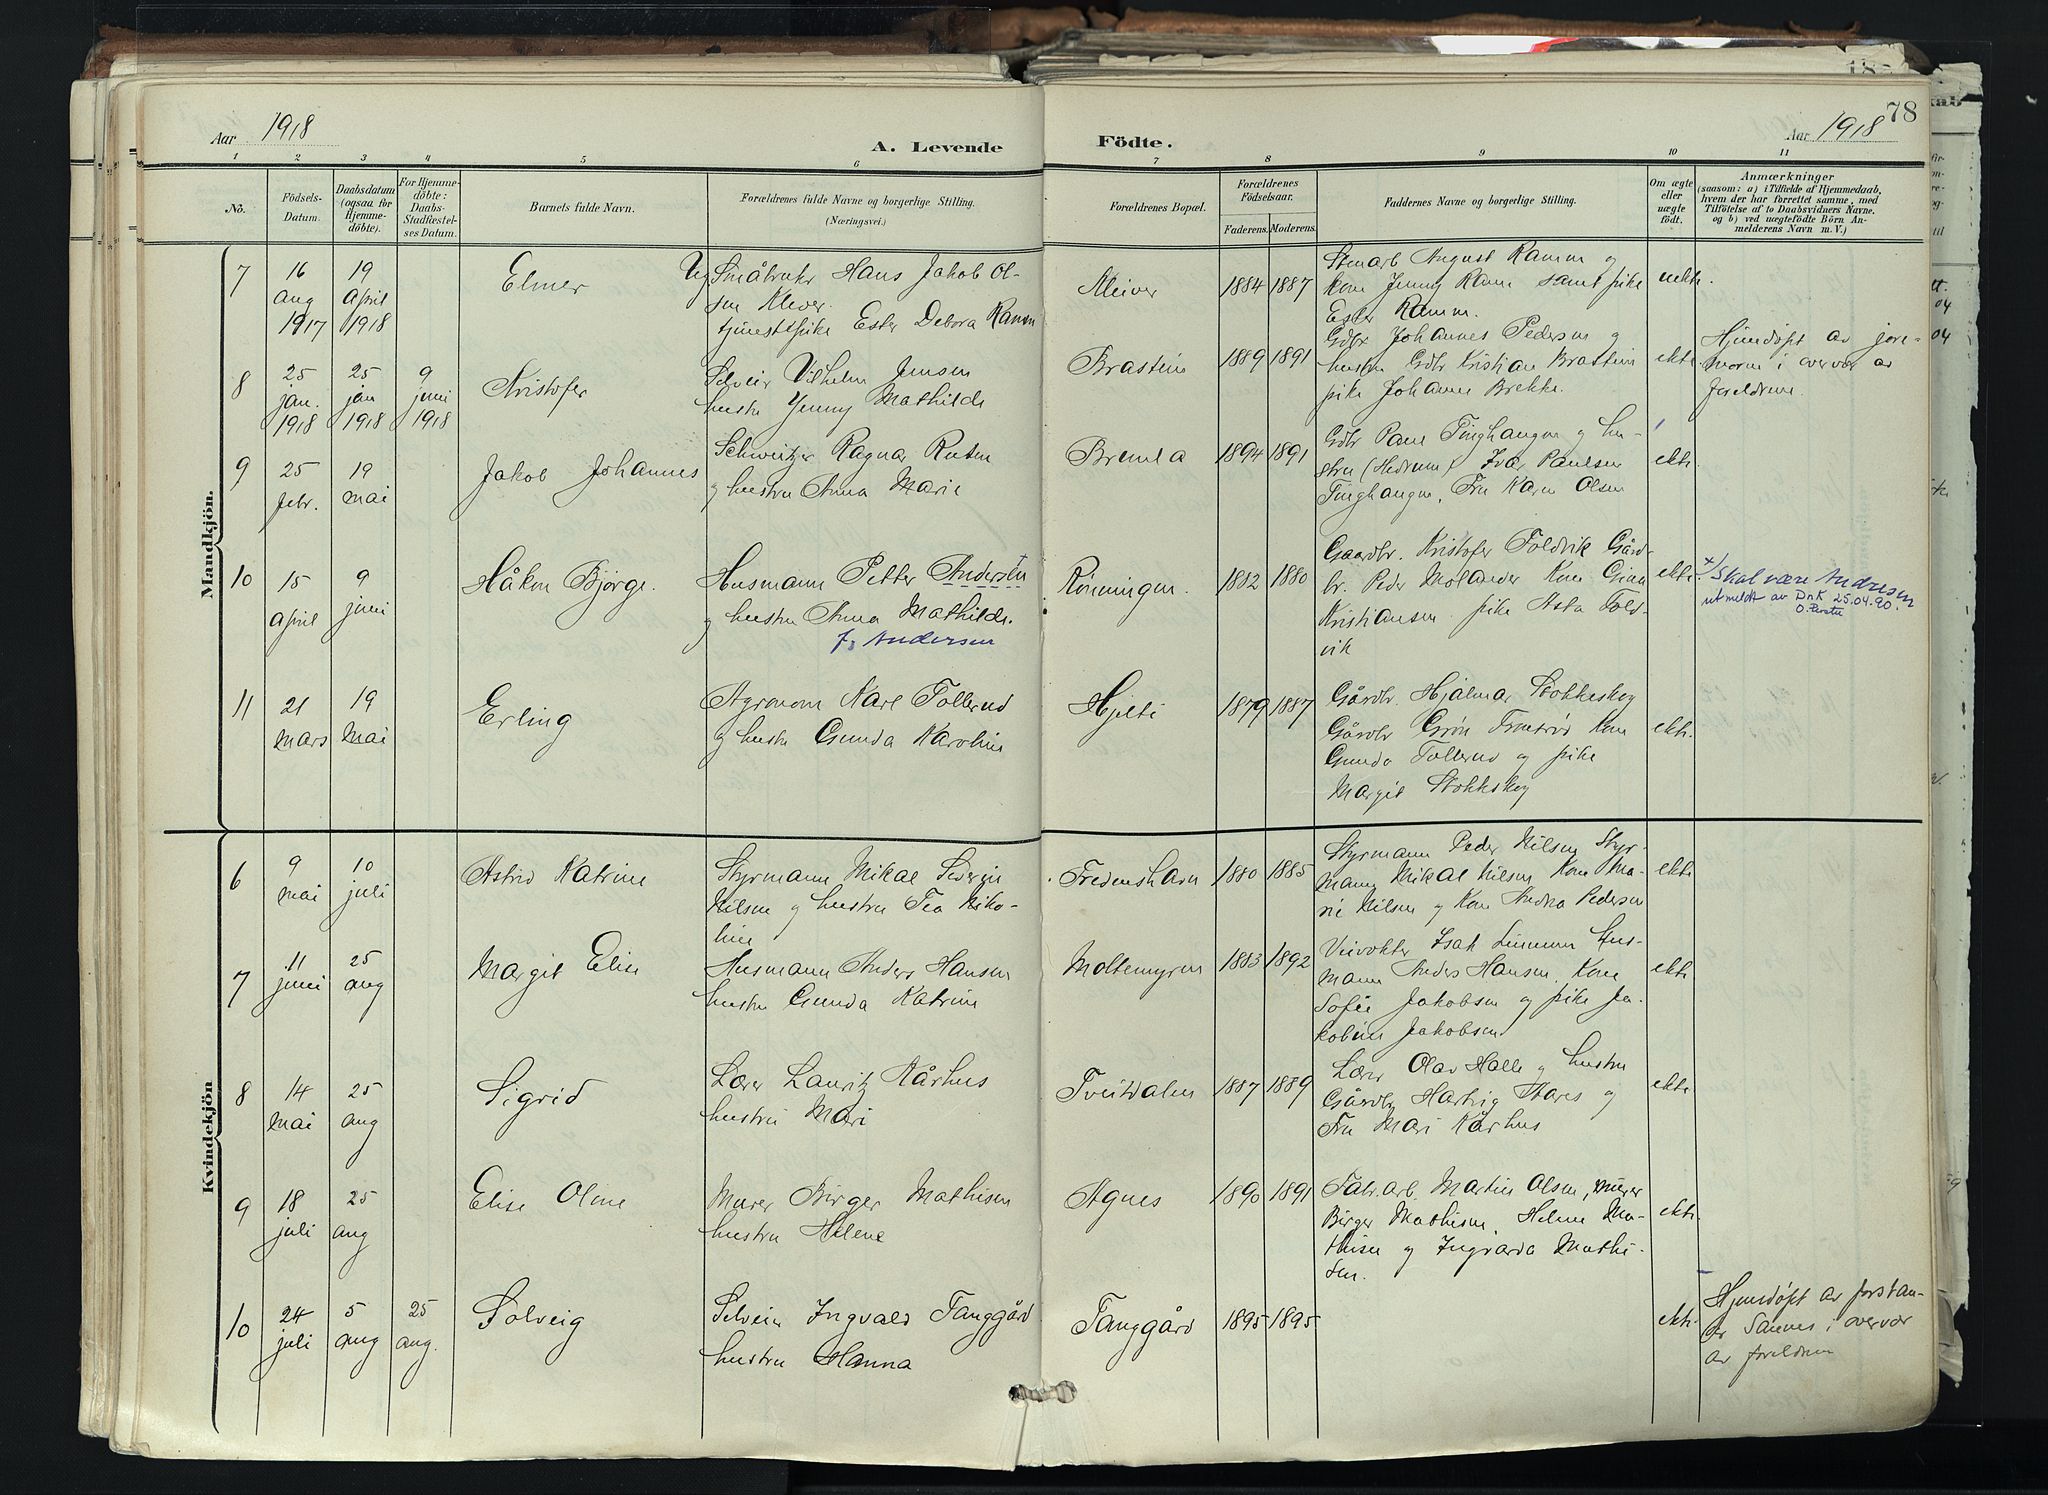 78
Aar 1918
A. Levende
Födte.
Aar 1918
1 2 3 4 5 6 7 8 9 10 11
No.
Födsels-Datum.
Daabsdatum (ogsaa for Hjemme-döbte).
For Hjemme-döbte: Daabs-Stadfæstel-ses Datum.
Barnets fulde Navn.
Forældrenes fulde Navne og borgerlige Stilling.
(Næringsvei.)
Forældrenes Bopæl.
Forældrenes Födselsaar.
Faderens. Moderens.
Faddernes Navne og borgerlige Stilling.
Om ægte eller uægte födt.
Anmærkninger
(saasom: a) i Tilfælde af Hjemmedaab, hvem der har forrettet samme, med Tilföielse af to Daabsvidners Navne. og b) ved uægtefödte Börn An-melderens Navn m. V.)
Mandkjön.
7 16 aug 1917 19 April 1918 Elmer
Ug Småbruker Hans Jakob Ol-
sen Kleiver.
tjenestepike Ester Debora Ramm
Kleiver 1884 1887
Stenarb August Ramm og
kone Jenny Ramm samt pike
Ester Ramm.
uekte.
8 25 jan. 1918 25 jan 1918 9 juni 1918 Kristofer
Selveier Vilhelm Jensen
hustru Jenny Mathilde
Brastein 1889 1891
Gdbr Johannes Pedersen og
hustru Gdbr Kristian Brastein
pike Johanne Brekke.
ekte
Hjemdøpt av jore-
moren i overvær av
foreldrene.
9 25 febr. 19 mai Jakob Johannes
Schweitzer Ragnar Roten
og hustru Anna Marie
Bremla 1894 1891
Gdbr Paul Tinghaugen og hu-
stru (Hedrum) Ivar Paulsen
Tinghaugen, Fru Karen Olsen
ekte.
10 15 April 9 juni Håkon Bjørge.
Husmann Petter Andersen +
og hustru Anna Mathilde.
f. Andersen
Rønningen. 1882 1880
Gaardbr. Kristofer Foldvik Gård-
br. Peder Molander Kone Gina
Kristiansen pike Asta Fold-
vik
ekte.
+/ Skal være Andresen
utmeldt av DnK 25.04.90.
11 21 mars 19 Mai Erling
Agronom Karl Tollerud
og hustru Gunda Karoline
Hjelti 1879 1887
Gårdbr. Hjalmar Stokkeskog
Gårdbr Grøn Fron­trød Kone
Gunda Tollerud og pike
Margit Stokkskog
ekte.
Kvindekjön
6 9 mai 10 juli Astrid Katrine
Styrmann Mikal Severin
Nilsen og hustru Tea Niko-
line
Fredenshavn 1880 1885
Styrmann Peder Nilsen Styr-
mann Mikal Nilsen Kone Ma-
rie Nilsen og Kone Andrea Pedersen
ekte
7 11 juni 25 aug Margit Elise
Husmann Anders Hansen
hustru Gunda Katrine
Moltemyren 1883 1892
Veivokter Isak Linnum Hus-
mann Anders Hansen. Kone
Sofie Jakobsen og pike Ja-
kobine Jakobsen
ekte
8 14 mai 25 aug Sigrid
Lærer Lauritz Kårhus
hustru Mari
Tveitdalen 1887 1889
Lærer Olav Halle og hustru
Gårdbr Hartvig Aares og
Fru Mari Kårhus
ekte
9 18 juli 25 aug Elise Oline
Murer Birger Mathisen
hustru Helene
Agnes 1890 1891
Fabr.arb. Martin Olsen, murer
Birger Mathisen, Helene Ma-
thisen og Ingvarda Mathi-
sen.
ekte.
10 24 juli 5 aug 25 aug. Solveig
Selveier Ingvald Tanggård
hustru Hanna
Tanggård 1895 1895
ekte.
Hjemdøpt av forstan-
der Sannes i overvær
av foreldrene